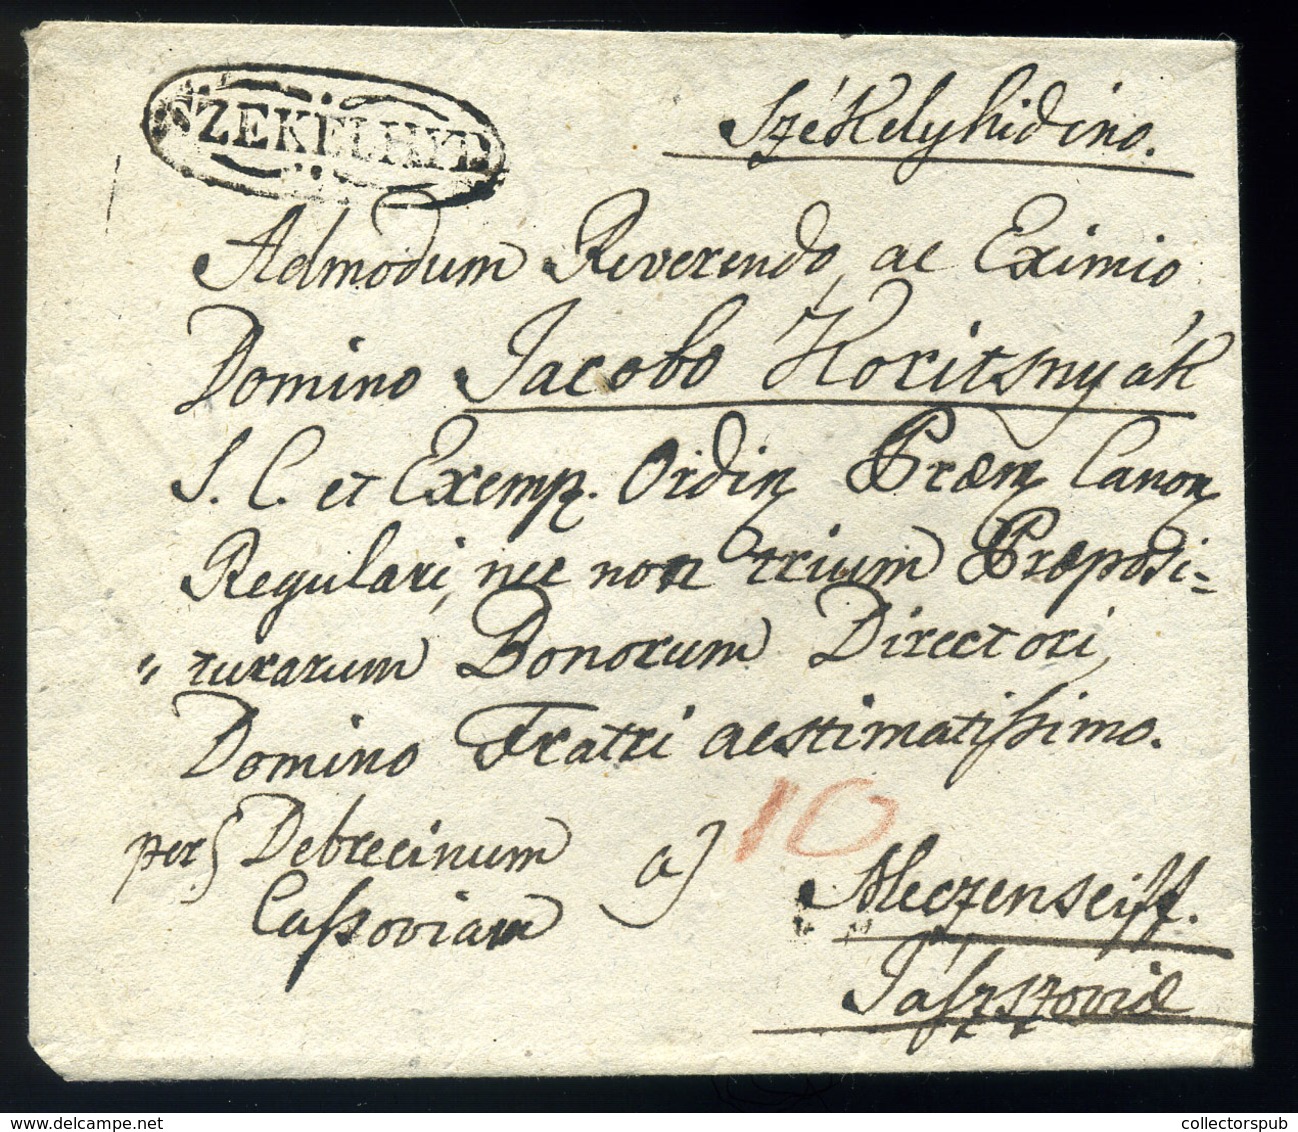 SZEKELHYD
Székelyhidino.
Admodum Reverendo, ac Eximio
Domino Jacobo Koritsnyák
S. C. et Exemp. Ordin Præm Canon
Regulari, nec non trium Præposi=
"turarum Bonorum Directori,
Domino Fratri aestimatissimo.
10
per Debrecinum a)
Cassoviam
Meczenseiff.
Jászszoviæ
collectorspub